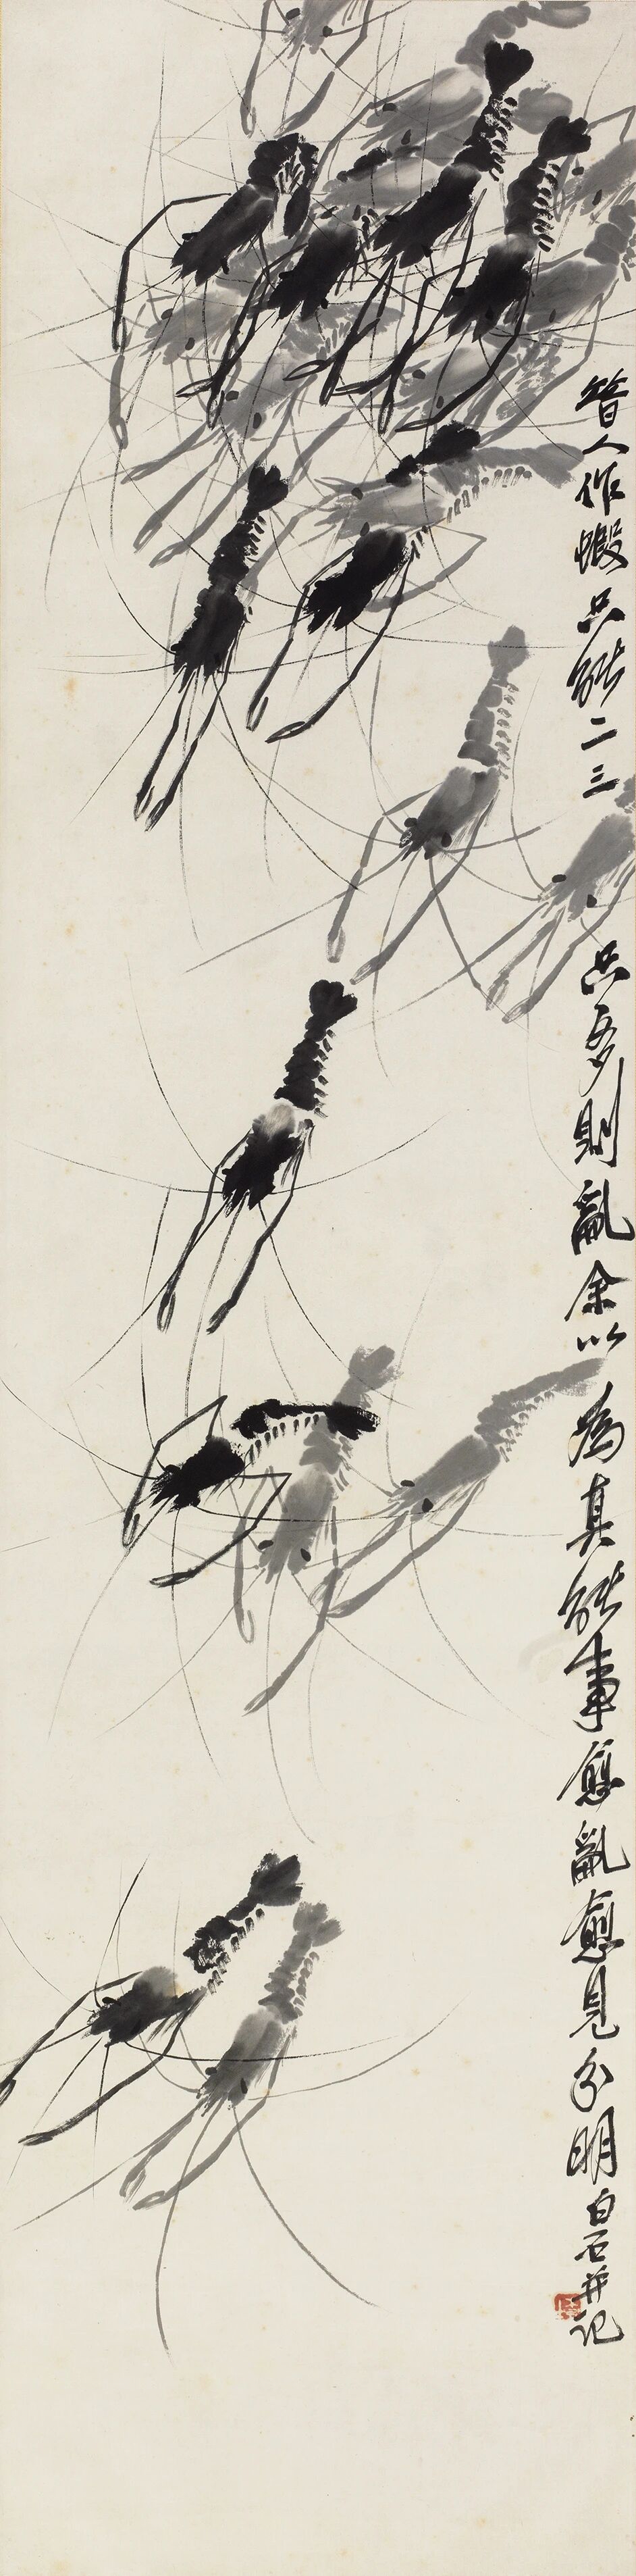 昔人作蝦只能二三只多則亂余以為真能事愈亂愈見分明白石并記